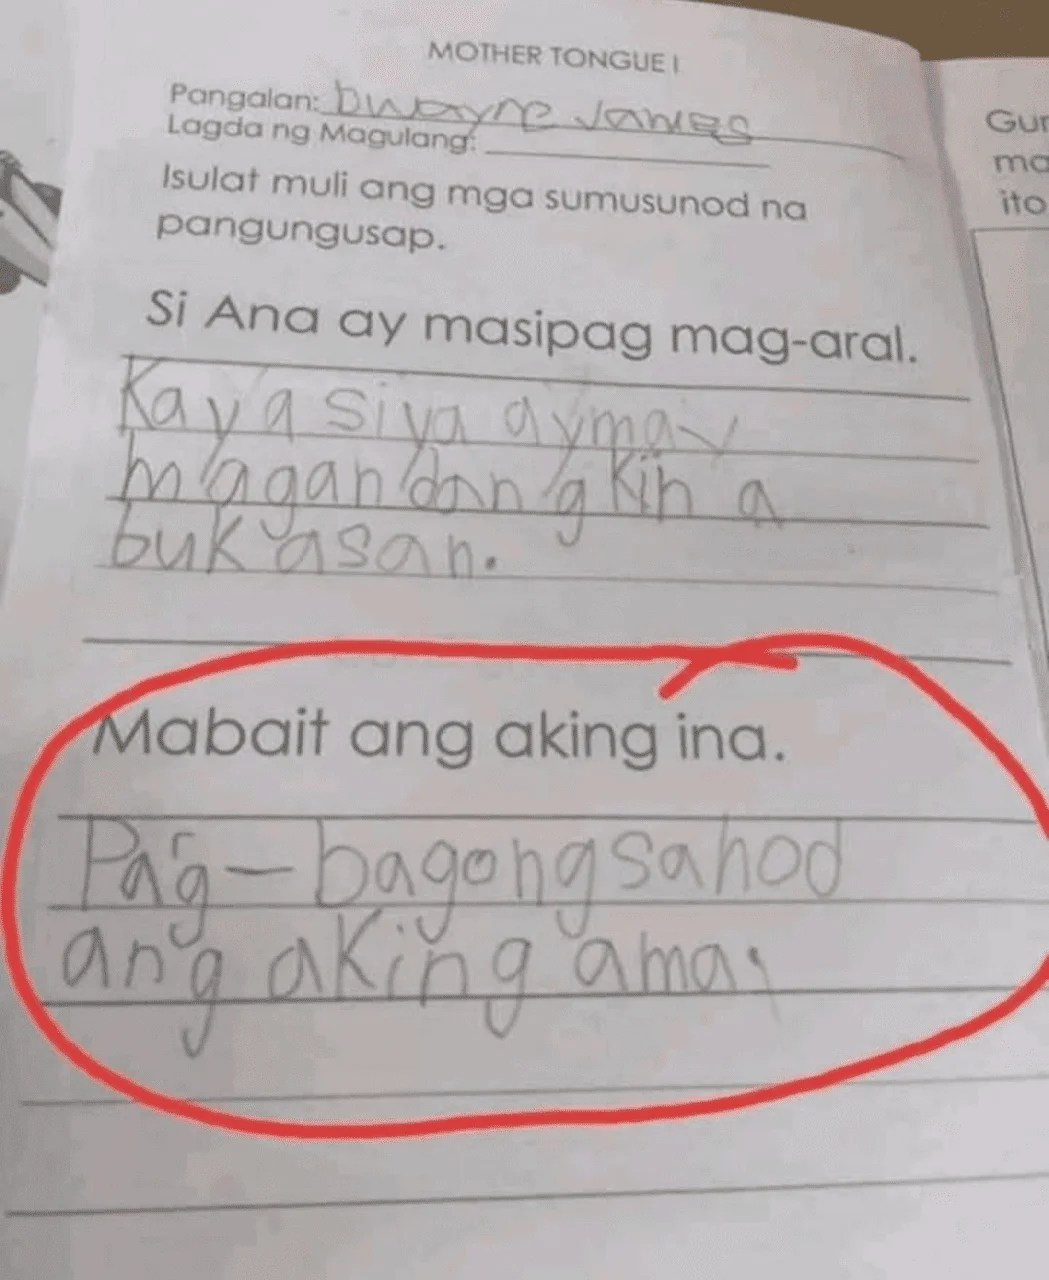 MOTHER TONGUE I
Pangalan: Dwayne James
Lagda ng Magulang:
Isulat muli ang mga sumusunod na
pangungusap.
Si Ana ay masipag mag-aral.
Kaya siya ay may
magandang kin a
bukasan.
Mabait ang aking ina.
Pag-bagong sahod
ang aking ama,
Gur
ma
ito